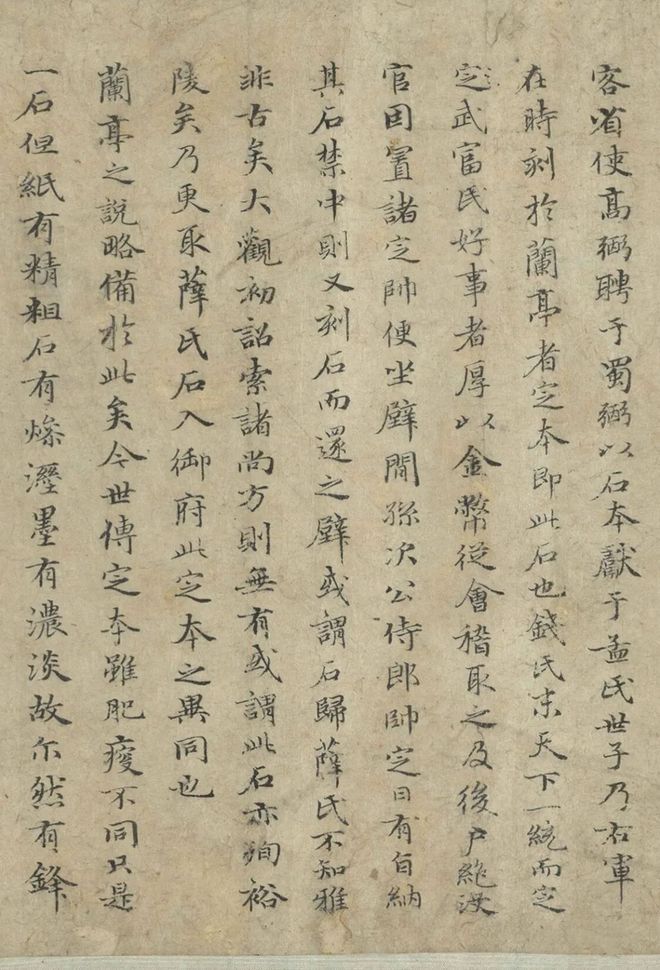 客省使高弼聘于蜀弼以石本獻于孟氏世子乃右軍
在時刻於蘭亭者定本即此石也錢氏末天下一統而定
定武富民好事者厚以金幣從會稽取之及後戶絶没
官因置諸定帥便坐壁間孫次公侍郎帥定日有旨納
其石禁中則又刻石而還之壁或謂石歸薛氏不知雅
非古矣大觀初詔索諸尚方則無有或謂此石亦殉裕
陵矣乃更取薛氏石入御府此定本之異同也
蘭亭之說略備於此矣今世傳定本雖肥瘦不同只是
一石但紙有精粗石有燥溼墨有濃淡故尓然有鋒